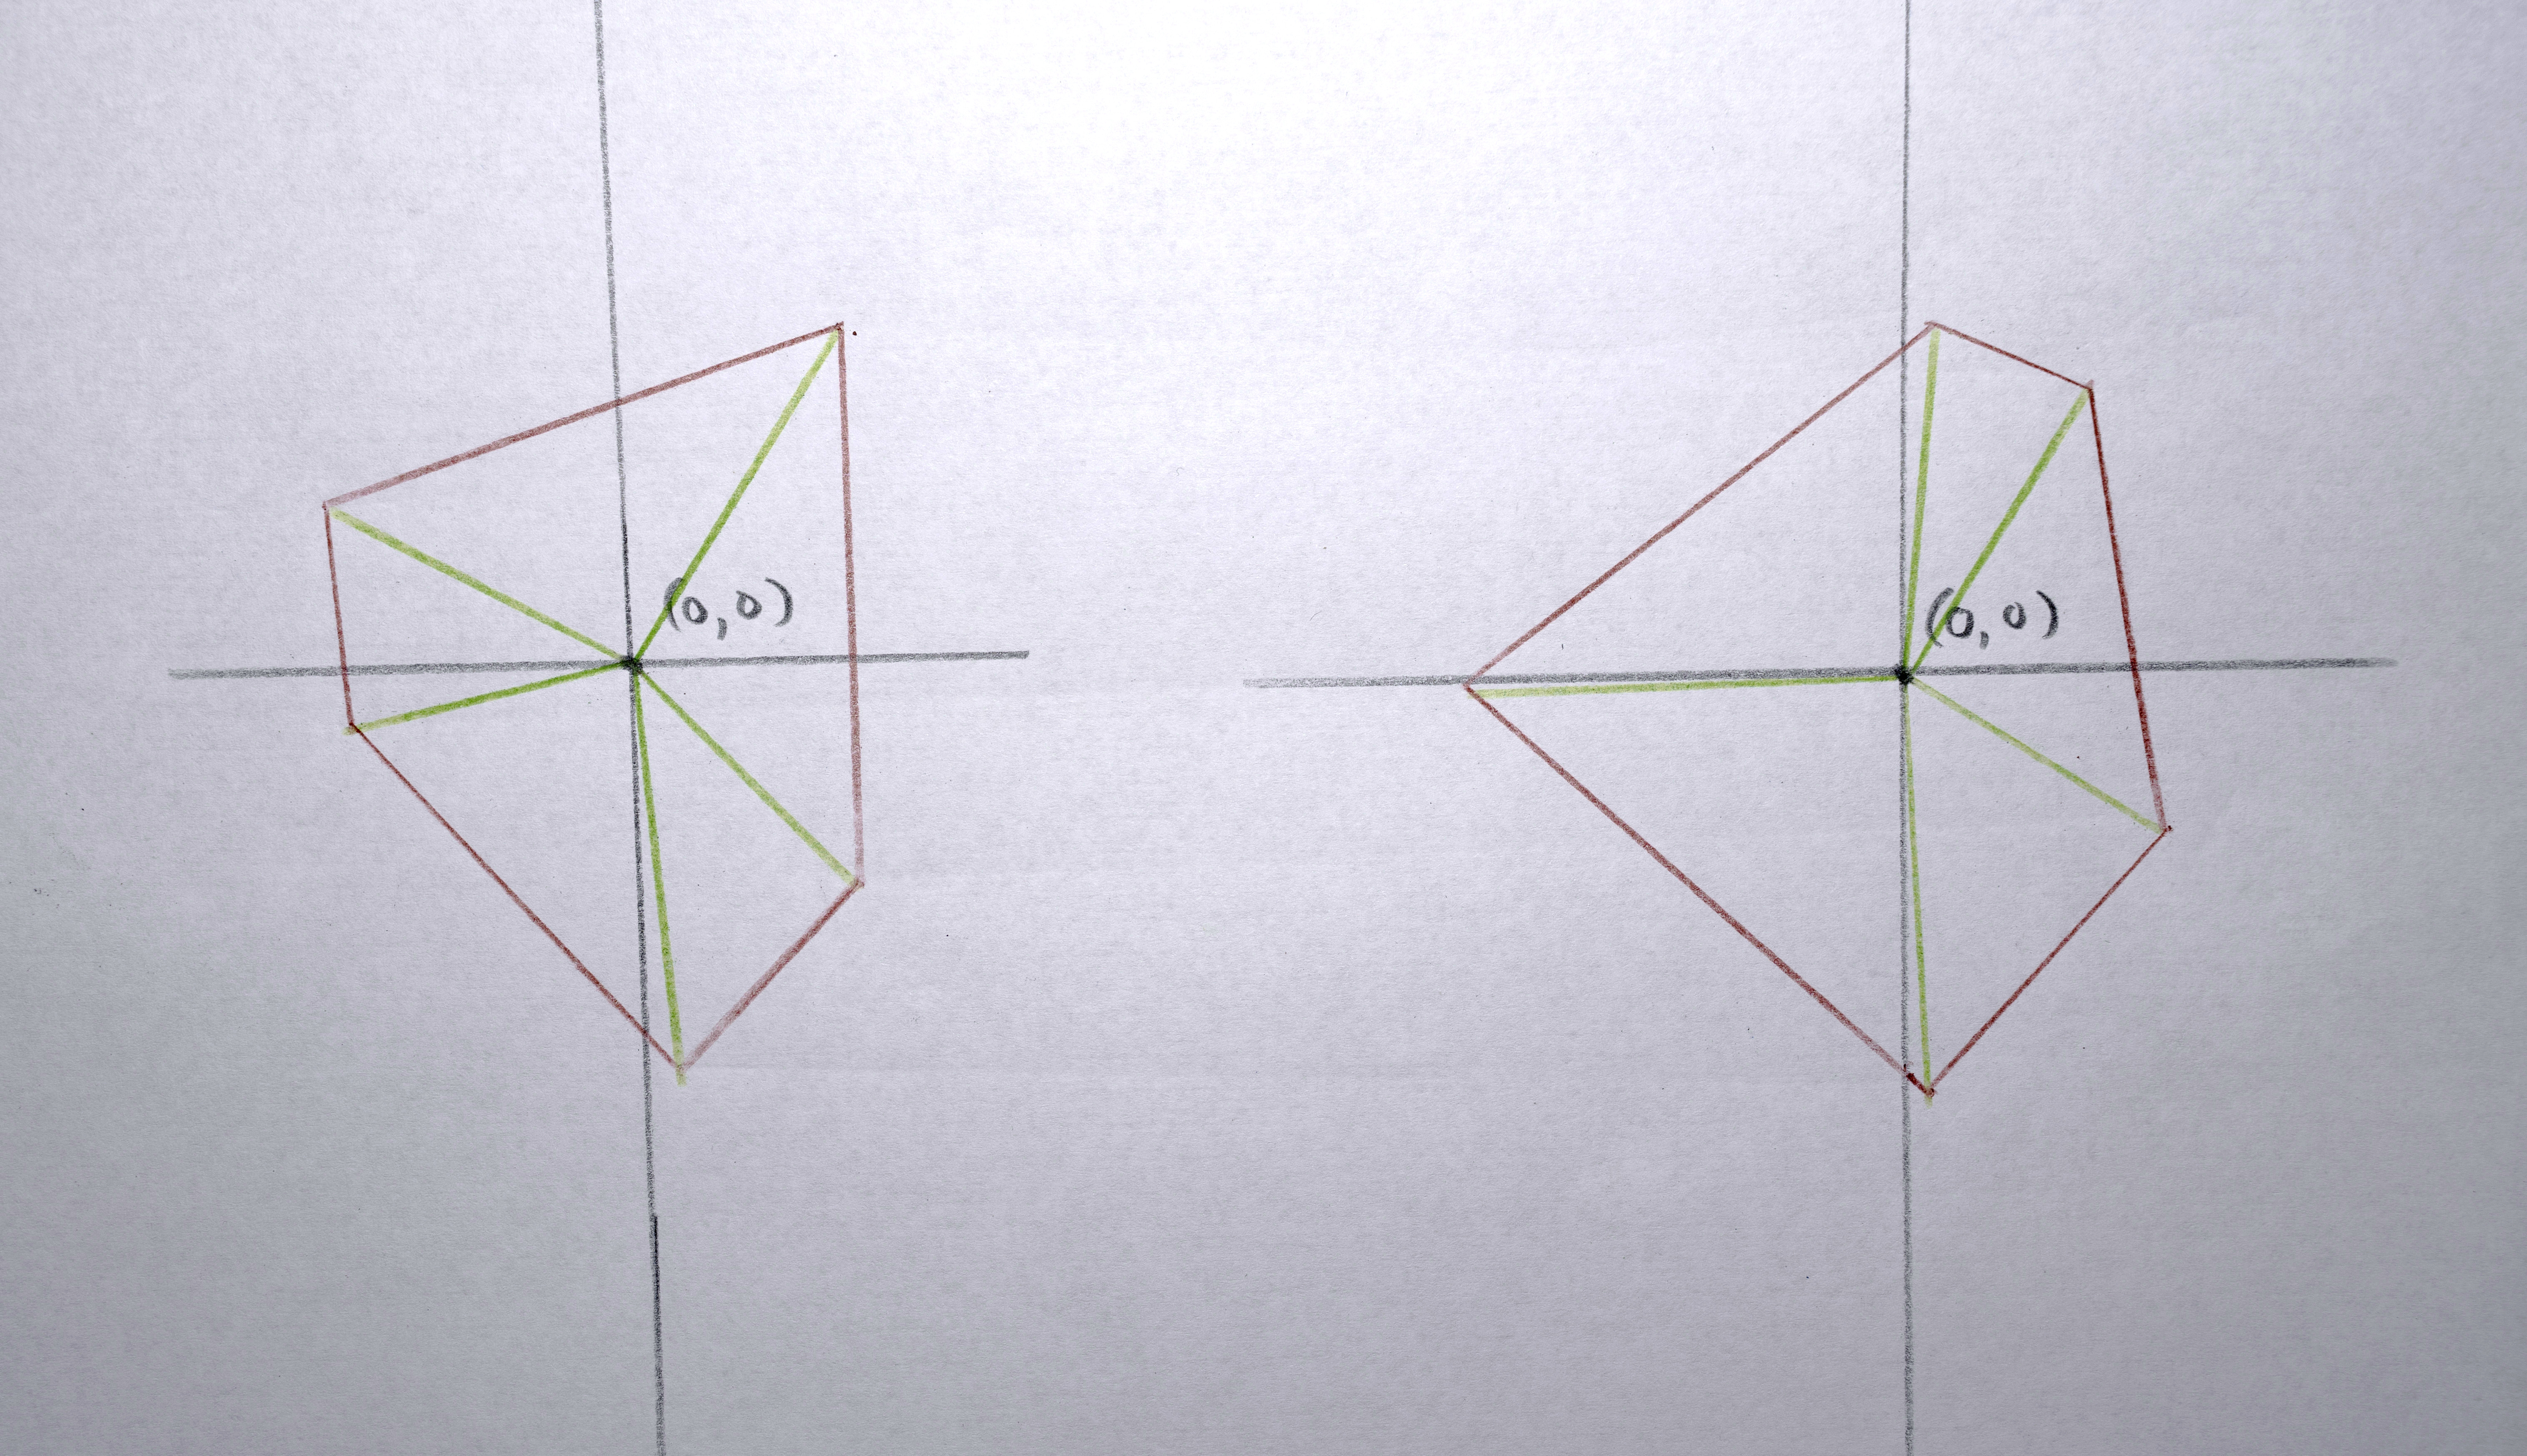 (0,0)
(0,0)